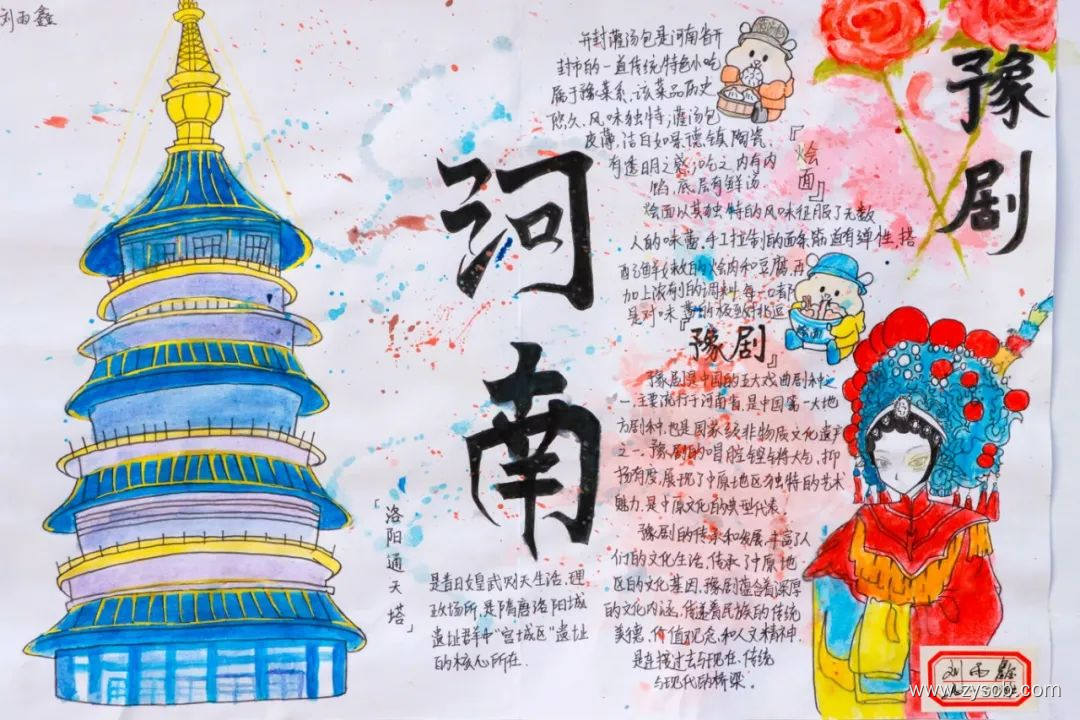 刘雨鑫
开封灌汤包是河南省开
封市的一道传统特色小吃
属于豫菜系,该菜品历史
悠久、风味独特,灌汤包
皮薄,洁白如景德镇陶瓷,
有透明之感,吃之内有肉
馅,底层有鲜汤
『烩面』
烩面以其独特的风味征服了无数
人的味蕾,手工拉制的面条筋道有弹性,搭
配鲜嫩的烩肉和豆腐,再
加上浓郁的调料,每一口都
是对味蕾的极致挑逗
豫剧
河南
『豫剧』
豫剧是中国的五大戏曲剧种之
一,主要流行于河南省,是中国第一大地
方剧种,也是国家级非物质文化遗产
之一,豫剧的唱腔铿锵大气,抑
扬有度,展现了中原地区独特的艺术
魅力,是中原文化的典型代表,
豫剧的传承和发展,丰富了人
们的文化生活,传承了中原地
区的文化基因,豫剧蕴含着深厚
的文化内涵,传递着民族的传统
美德,价值观念,和人文精神,
是连接过去与现在,传统
与现代的桥梁.
「洛阳通天塔」
是昔日女皇武则天生活、理
政场所,是隋唐洛阳城
遗址群中"宫城区"遗址
的核心所在.
刘雨鑫
www.zyscb.com